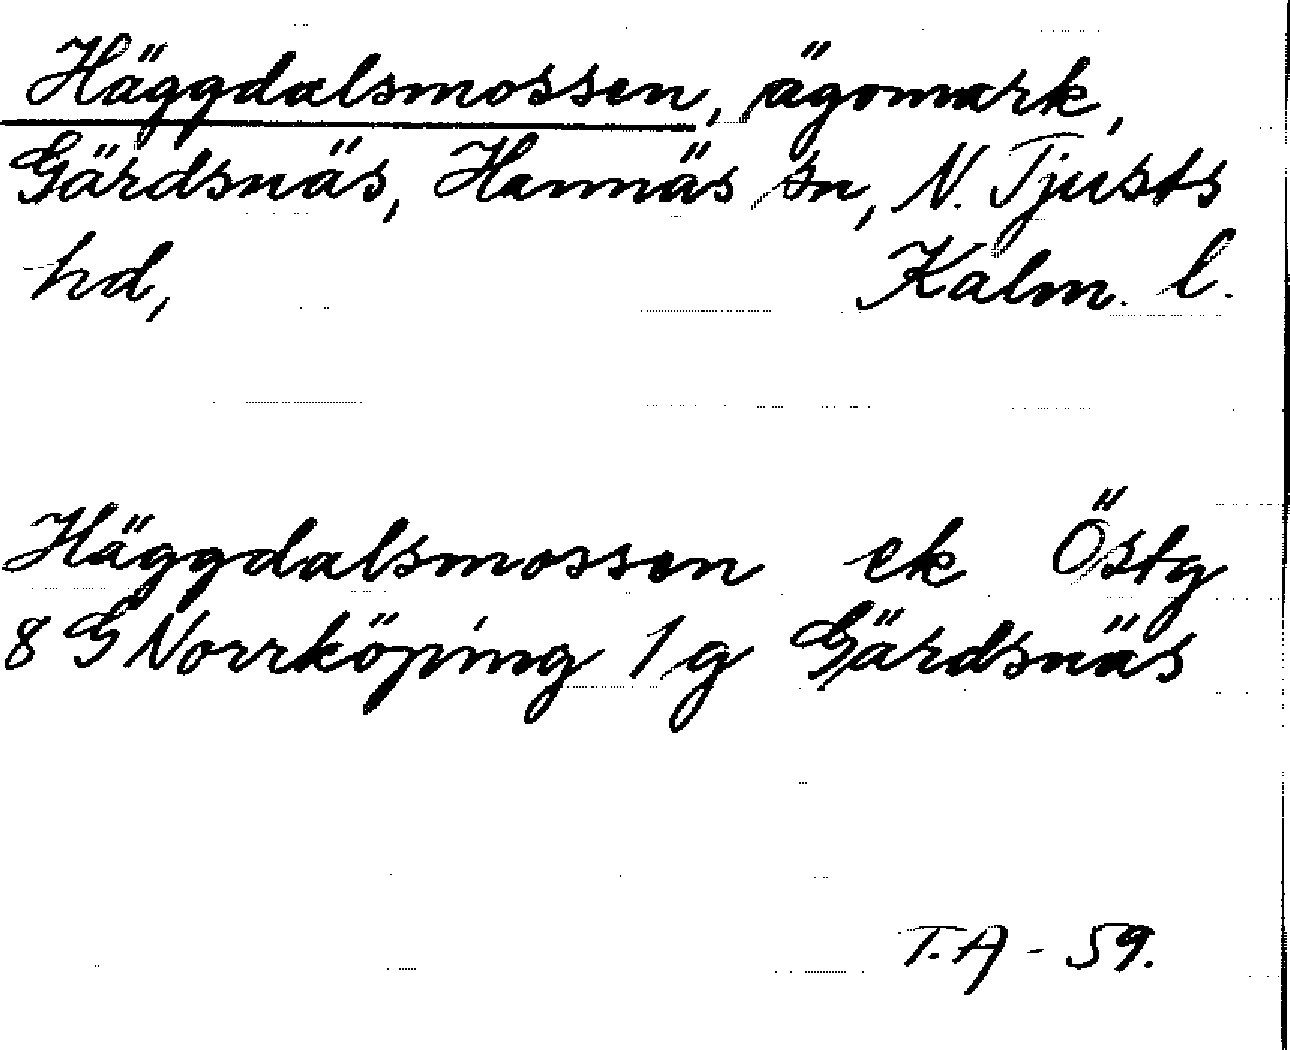 Häggdalsmossen, ägomark,
Gärdsnäs, Hannäs sn, N. Tjusts
hd, Kalm. l.
Häggdalsmossen ek Östg
8 G Norrköping 1 g Gärdsnäs
T.A - 59.